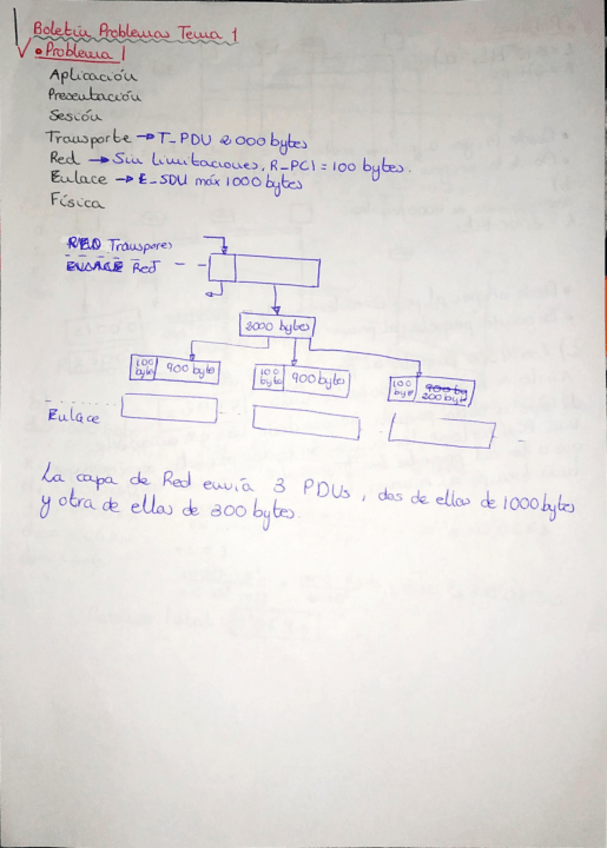 Boletín Problemas Tema 1
• Problema 1
Aplicación
Presentación
Sesión
Transporte → T_PDU 2000 bytes
Red → Sin limitaciones, R_PCI = 100 bytes.
Enlace → E_SDU máx 1000 bytes
Física
RED Transpores
ENLACE Red
2000 bytes
100 byte 900 byte
100 byte 900 byte
100 byte 900 by 200 byte
Enlace
La capa de Red envía 3 PDUs, dos de ellas de 1000 bytes
y otra de ellas de 300 bytes.